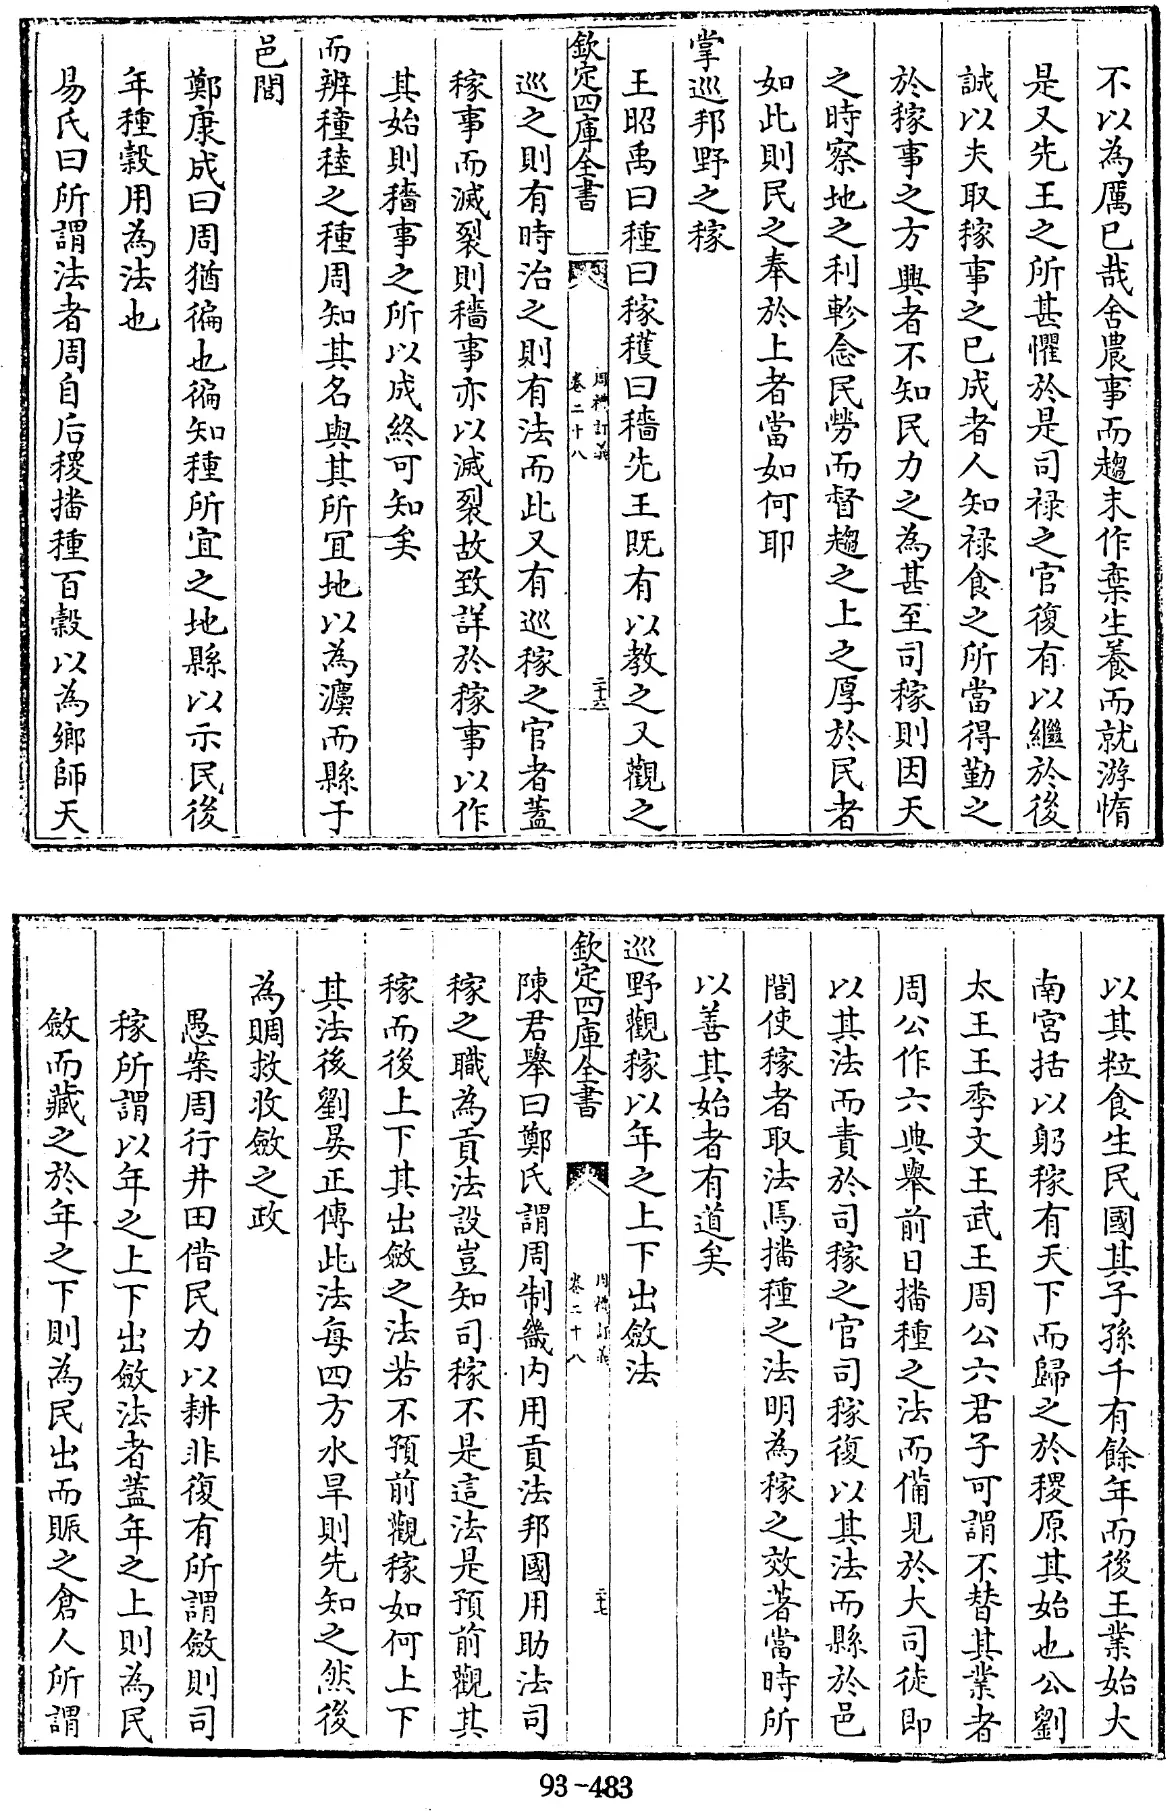 不以為厲已哉舍農事而趨末作棄生養而就游惰
是又先王之所甚懼於是司禄之官復有以繼於後
誠以夫取稼事之已成者人知禄食之所當得勤之
於稼事之方興者不知民力之為甚至司稼則因天
之時察地之利軫念民勞而督趨之上之厚於民者
如此則民之奉於上者當如何耶
掌巡邦野之稼
王昭禹曰種曰稼穫曰穡先王既有以教之又觀之
欽定四庫全書
周禮訂義
卷二十八
二十六
巡之則有時治之則有法而此又有巡稼之官者蓋
稼事而滅裂則穡事亦以滅裂故致詳於稼事以作
其始則穡事之所以成終可知矣
而辨穜稑之種周知其名與其所宜地以為灋而縣于
邑閭
鄭康成曰周猶徧也徧知種所宜之地縣以示民後
年種穀用為法也
易氏曰所謂法者周自后稷播種百穀以為鄉師天
以其粒食生民國其子孫千有餘年而後王業始大
南宮括以躬稼有天下而歸之於稷原其始也公劉
太王王季文王武王周公六君子可謂不替其業者
周公作六典舉前日播種之法而備見於大司徒即
以其法而責於司稼之官司稼復以其法而縣於邑
閭使稼者取法焉播種之法明為稼之效著當時所
以善其始者有道矣
巡野觀稼以年之上下出斂法
欽定四庫全書
周禮訂義
卷二十八
二十七
陳君舉曰鄭氏謂周制畿内用貢法邦國用助法司
稼之職為貢法設豈知司稼不是這法是預前觀其
稼而後上下其出斂之法若不預前觀稼如何上下
其法後劉晏正傳此法每四方水旱則先知之然後
為賙救收斂之政
愚案周行井田借民力以耕非復有所謂斂則司
稼所謂以年之上下出斂法者蓋年之上則為民
斂而藏之於年之下則為民出而賑之倉人所謂
93-483